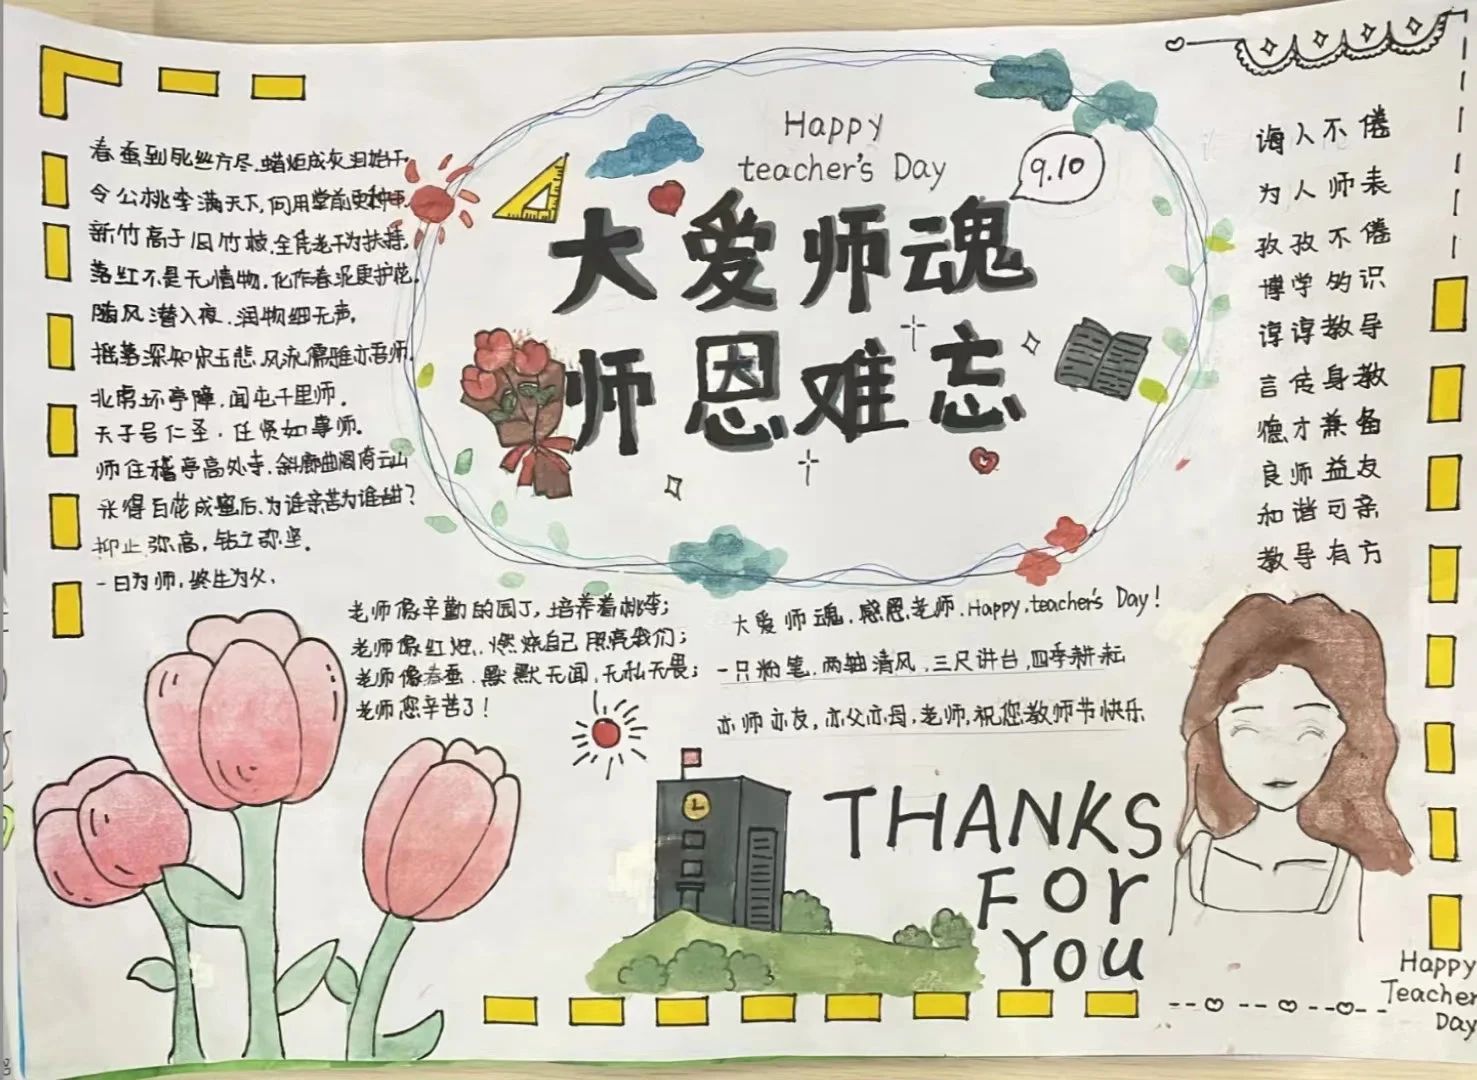 Happy
teacher's Day
9.10
大爱师魂
师恩难忘
春蚕到死丝方尽.蜡炬成灰泪始干.
令公桃李满天下,何用堂前更种
新竹高于旧竹枝,全凭老干为扶持.
落红不是无情物,化作春泥更护花.
随风潜入夜.润物细无声.
摇落深知宋玉悲.风流儒雅亦吾师.
北虏坏亭障,闻屯千里师.
天子号仁圣.任贤如事师.
师住稽亭高处寺.斜廊曲阁倚云山
采得百花成蜜后.为谁辛苦为谁甜?
仰止弥高,钻之弥坚.
一日为师,终生为父.
诲人不倦
为人师表
孜孜不倦
博学多识
谆谆教导
言传身教
德才兼备
良师益友
和谐可亲
教导有方
老师像辛勤的园丁,培养着桃李;
老师像红烛.燃烧自己照亮我们;
老师像春蚕.默默无闻,无私无畏;
老师您辛苦了!
大爱师魂.感恩老师.Happy.teacher's Day!
一只粉笔.两袖清风.三尺讲台.四季耕耘
亦师亦友,亦父亦母.老师,祝您教师节快乐
THANKS
FOR
YOU
Happy
Teacher
Day